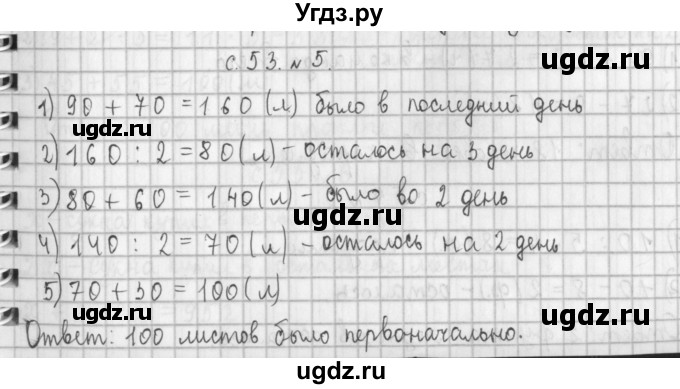 Угдз.ру
с. 53. № 5.
1) 90 + 70 = 160 (л) было в последний день
ugdz.ru ugdz.ru
2) 160 : 2 = 80 (л) - осталось на 3 день
3) 80 + 60 = 140 (л) - было во 2 день
ugdz.ru
4) 140 : 2 = 70 (л) - осталось на 2 день
ugdz.ru ugdz.ru
5) 70 + 30 = 100 (л)
Ответ: 100 листов было первоначально.
ugdz.ru ugdz.ru